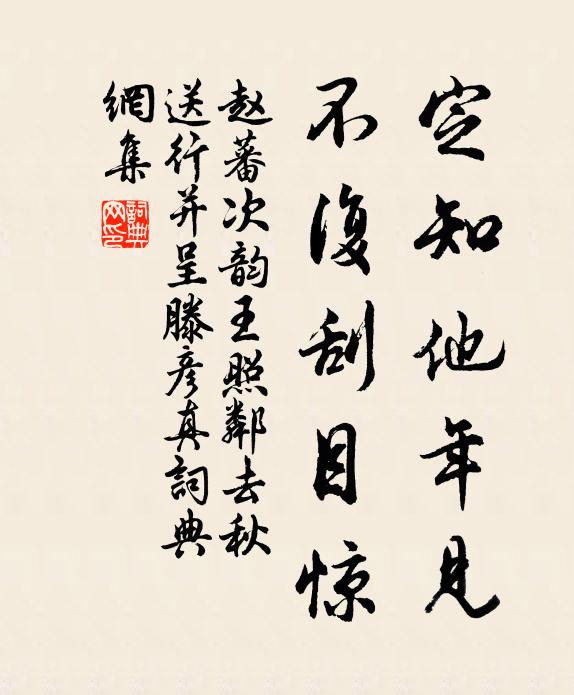 定知他年見
不復刮目惊
赵蕃次韵王照鄰去秋
送行并呈滕彦真詞典
網集
詞典網印